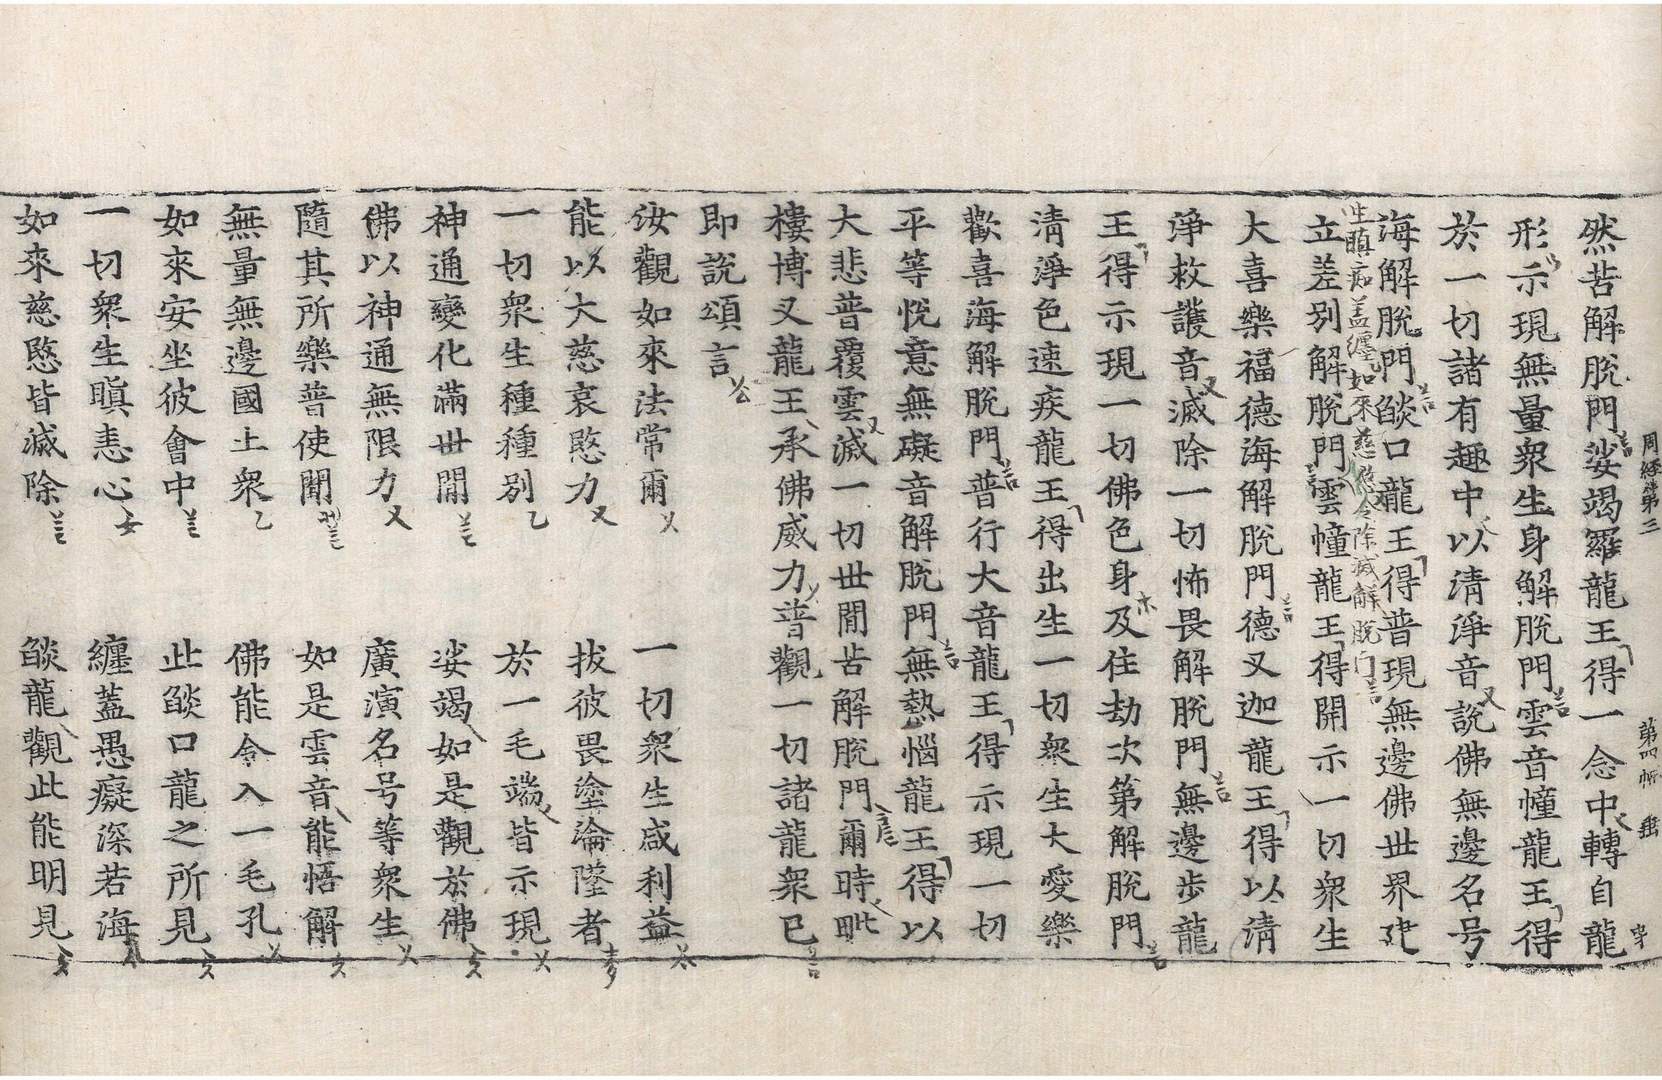 周經苐三　苐四帳
然苦解脫門娑竭羅龍王得一念中轉自龍
形示現無量衆生身解脫門雲音幢龍王得
於一切諸有趣中以淸淨音說佛無邊名号
海解脫門燄口龍王得普現無邊佛世界建
立差別解脫門雲幢龍王得開示一切衆生
大喜樂福德海解脫門德叉迦龍王得以淸
淨救護音滅除一切怖畏解脫門無邊步龍
王得示現一切佛色身及住劫次第解脫門
淸淨色速疾龍王得出生一切衆生大愛樂
歡喜海解脫門普行大音龍王得示現一切
平等悅意無礙音解脫門無熱惱龍王得以
大悲普覆雲滅一切世閒苦解脫門爾時毗
樓博叉龍王承佛威力普觀一切諸龍衆已
即說頌言
汝觀如來法常爾　一切衆生咸利益
能以大慈哀愍力　拔彼畏塗淪墜者
一切衆生種種別　於一毛端皆示現
神通變化滿世閒　娑竭如是觀於佛
佛以神通無限力　廣演名号等衆生
隨其所樂普使聞　如是雲音能悟解
無量無邊國土衆　佛能令入一毛孔
如來安坐彼會中　此燄口龍之所見
一切衆生瞋恚心　纏蓋愚癡深若海
如來慈愍皆滅除　燄龍觀此能明見